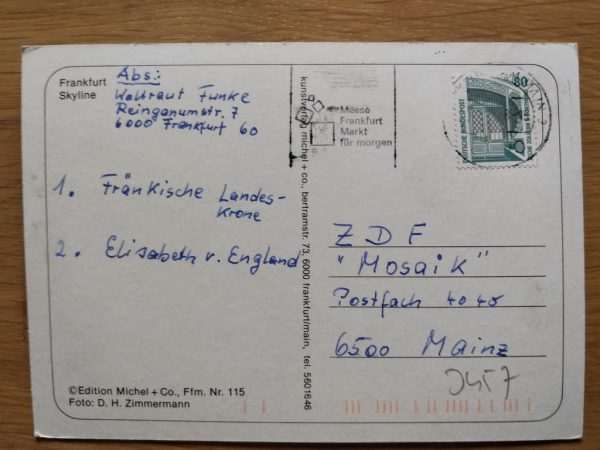 Frankfurt
Skyline
Abs.:
Waltraut Funke
Reinganumstr. 7
6000 Frankfurt 60
1. Fränkische Landes-
Krone
2. Elisabeth v. England
©Edition Michel + Co., Ffm. Nr. 115
Foto: D. H. Zimmermann
kunstverlag michel + co., bertramstr. 73, 6000 frankfurt/main, tel. 5601646
Messe
Frankfurt
Markt
für morgen
60
DEUTSCHE BUNDESPOST
ZDF
"Mosaik"
Postfach 40 40
6500 Mainz